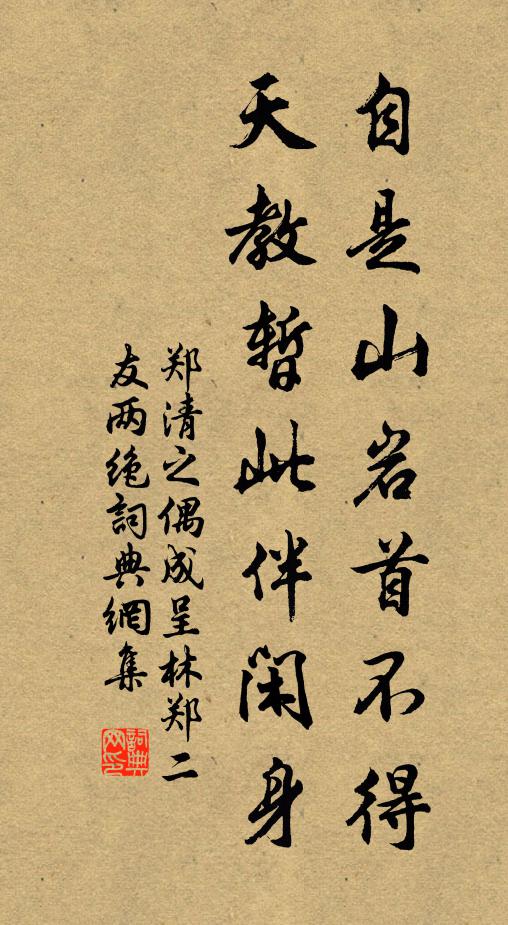 自是山岩首不得
天教暫此伴闲身
郑清之偶成呈林郑二
友两绝詞典網集
詞典
网印